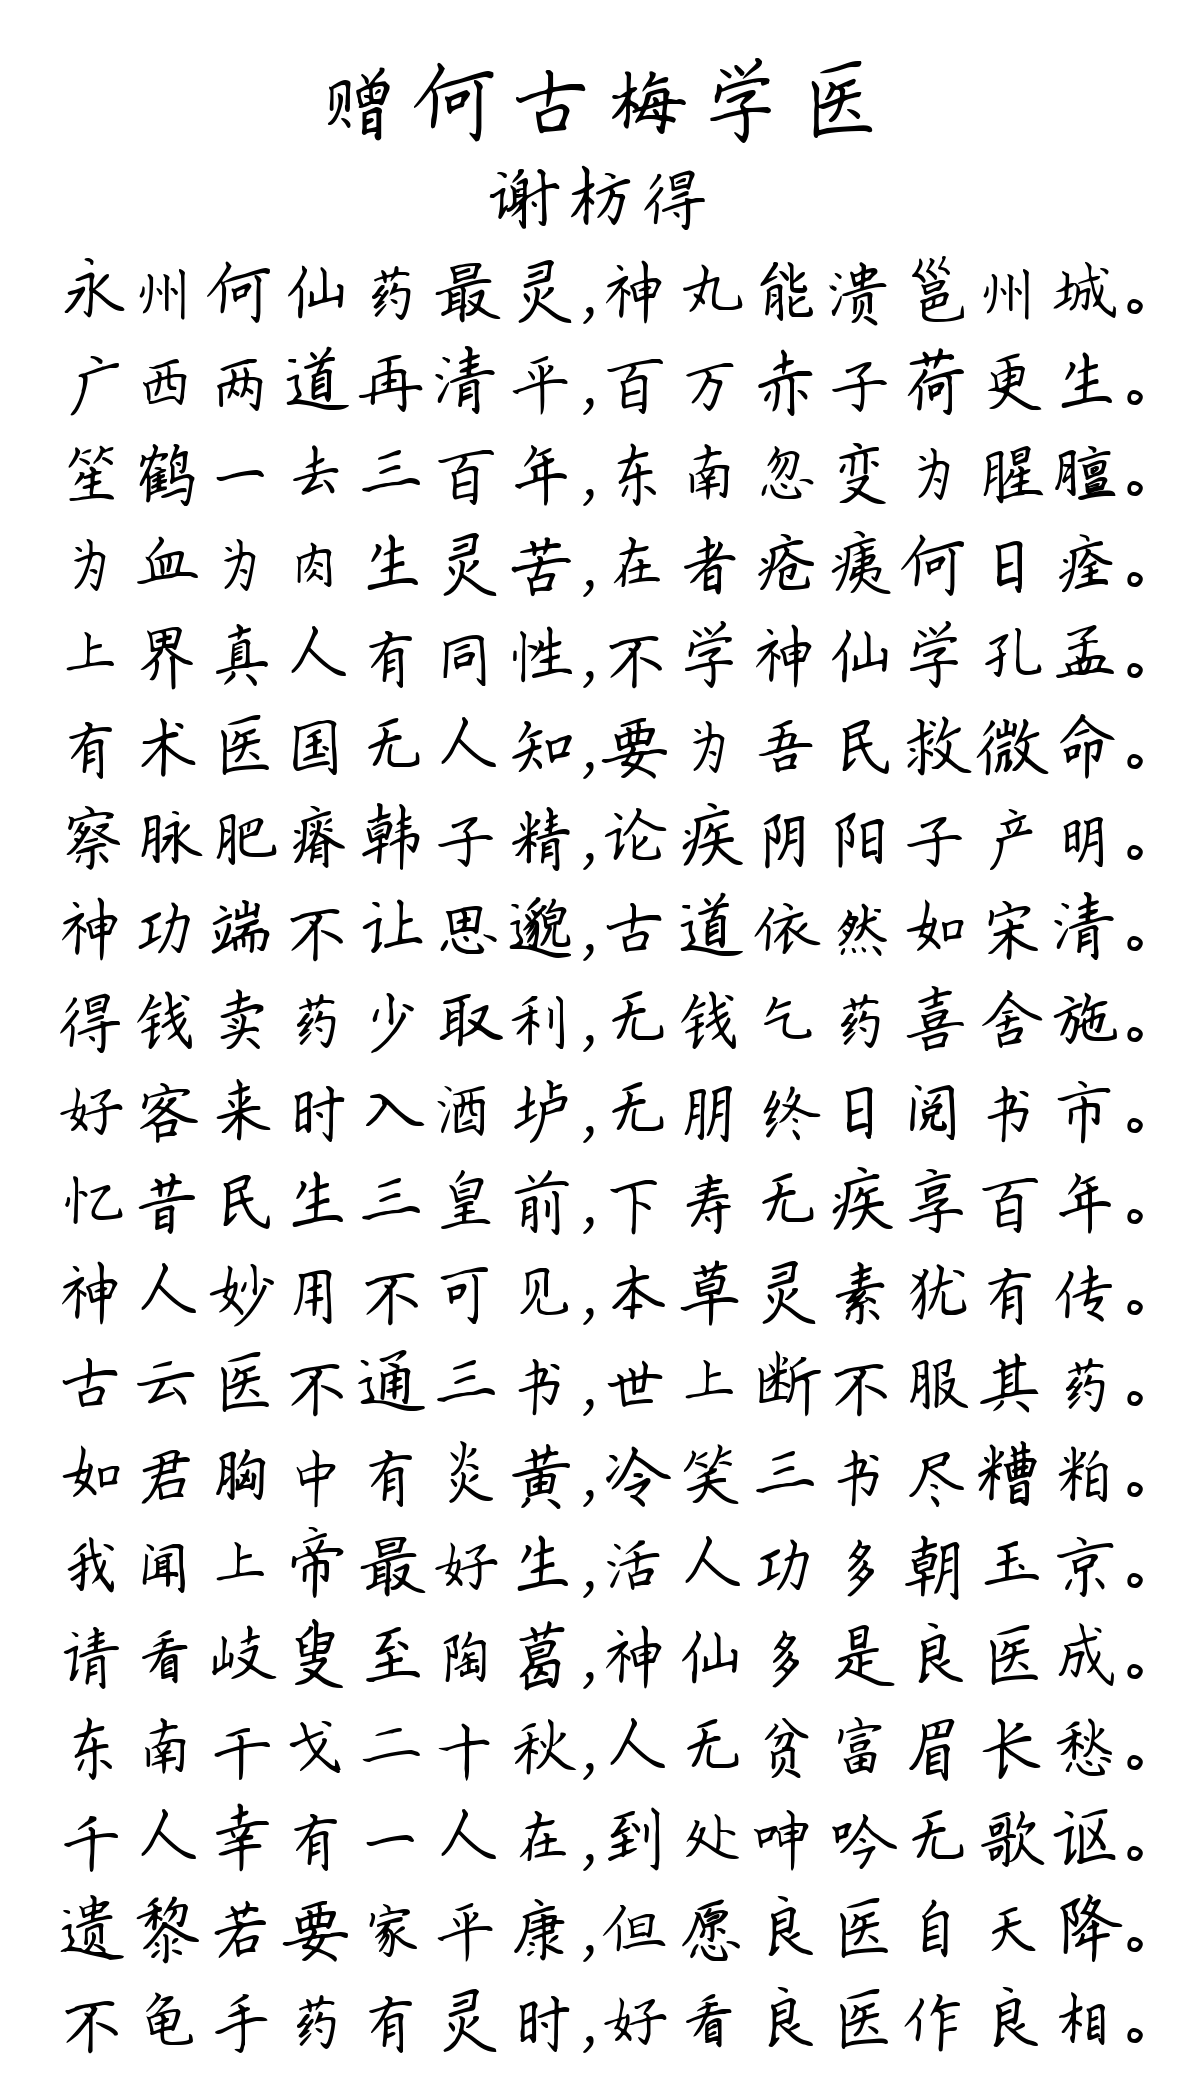 赠何古梅学医
谢枋得
永州何仙药最灵,神丸能溃邕州城。
广西两道再清平,百万赤子荷更生。
笙鹤一去三百年,东南忽变为腥膻。
为血为肉生灵苦,在者疮痍何日痊。
上界真人有同性,不学神仙学孔孟。
有术医国无人知,要为吾民救微命。
察脉肥瘠韩子精,论疾阴阳子产明。
神功端不让思邈,古道依然如宋清。
得钱卖药少取利,无钱乞药喜舍施。
好客来时入酒垆,无朋终日阅书市。
忆昔民生三皇前,下寿无疾享百年。
神人妙用不可见,本草灵素犹有传。
古云医不通三书,世上断不服其药。
如君胸中有炎黄,冷笑三书尽糟粕。
我闻上帝最好生,活人功多朝玉京。
请看岐叟至陶葛,神仙多是良医成。
东南干戈二十秋,人无贫富眉长愁。
千人幸有一人在,到处呻吟无歌讴。
遗黎若要家平康,但愿良医自天降。
不龟手药有灵时,好看良医作良相。